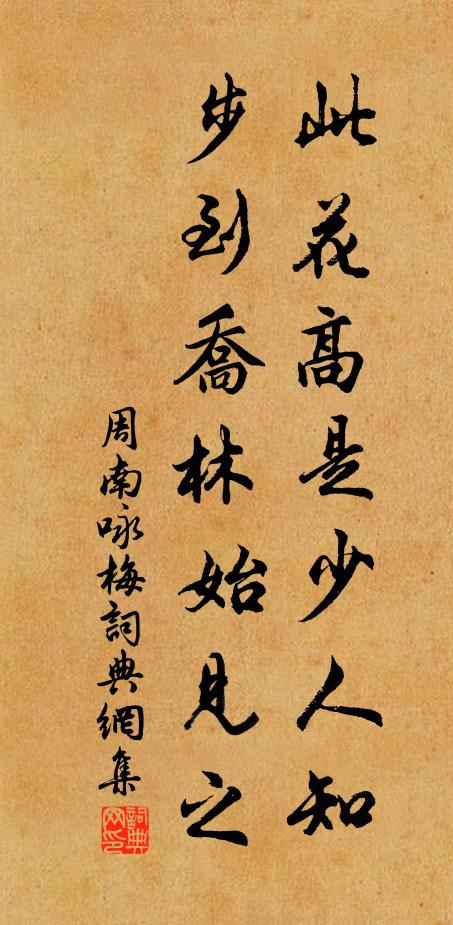 此花高是少人知
步到喬林始見之
周南咏梅詞典網集
詞典網印